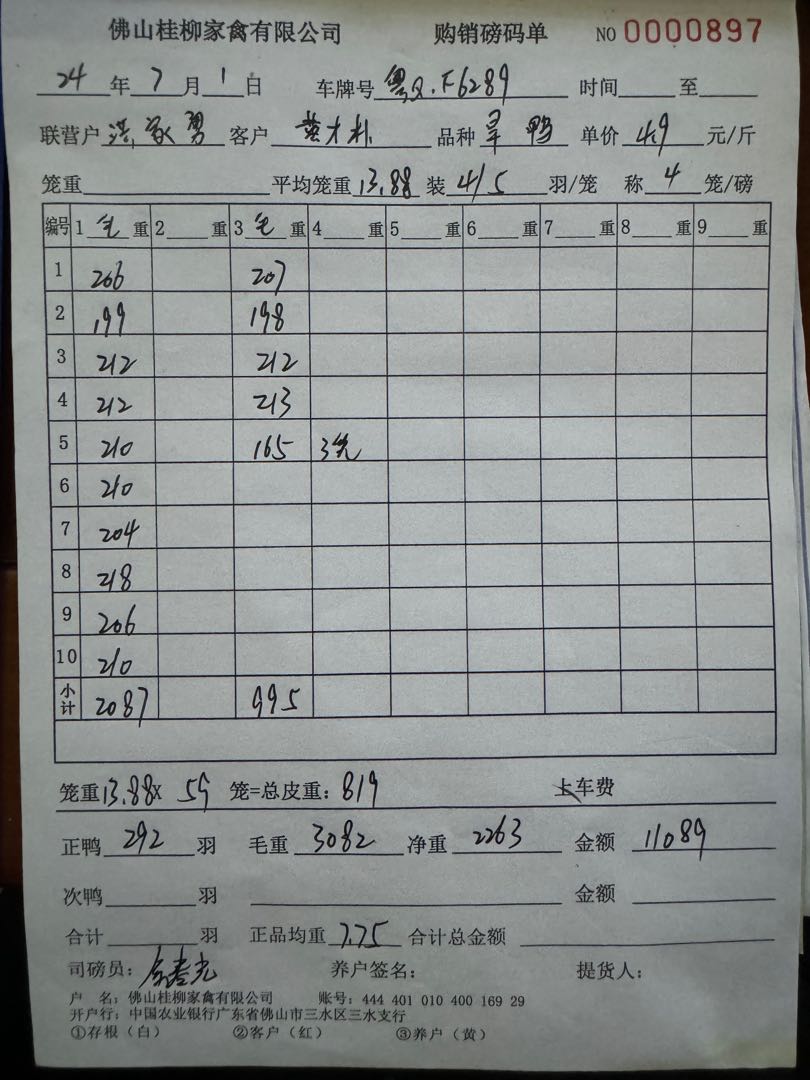 佛山桂柳家禽有限公司 购销磅码单 NO 0000897
24 年 7 月 1 日 车牌号 粤Q.F6289 时间 至
联营户 家勇 客户 黄才朴 品种 旱鸭 单价 4.9 元/斤
笼重 平均笼重 13.88 装 4/5 羽/笼 称 4 笼/磅
编号 1 毛 重 2 重 3 毛 重 4 重 5 重 6 重 7 重 8 重 9 重
1 206 207
2 199 198
3 212 212
4 212 213
5 210 165 3笼
6 210
7 204
8 218
9 206
10 210
小计 2087 995
笼重 13.88 x 59 笼=总皮重: 819 卡车费
正鸭 292 羽 毛重 3082 净重 2263 金额 11089
次鸭 羽 金额
合计 羽 正品均重 7.75 合计总金额
司磅员: 养户签名: 提货人:
户 名: 佛山桂柳家禽有限公司 账号: 444 401 010 400 169 29
开户行: 中国农业银行广东省佛山市三水区三水支行
①存根(白) ②客户(红) ③养户(黄)